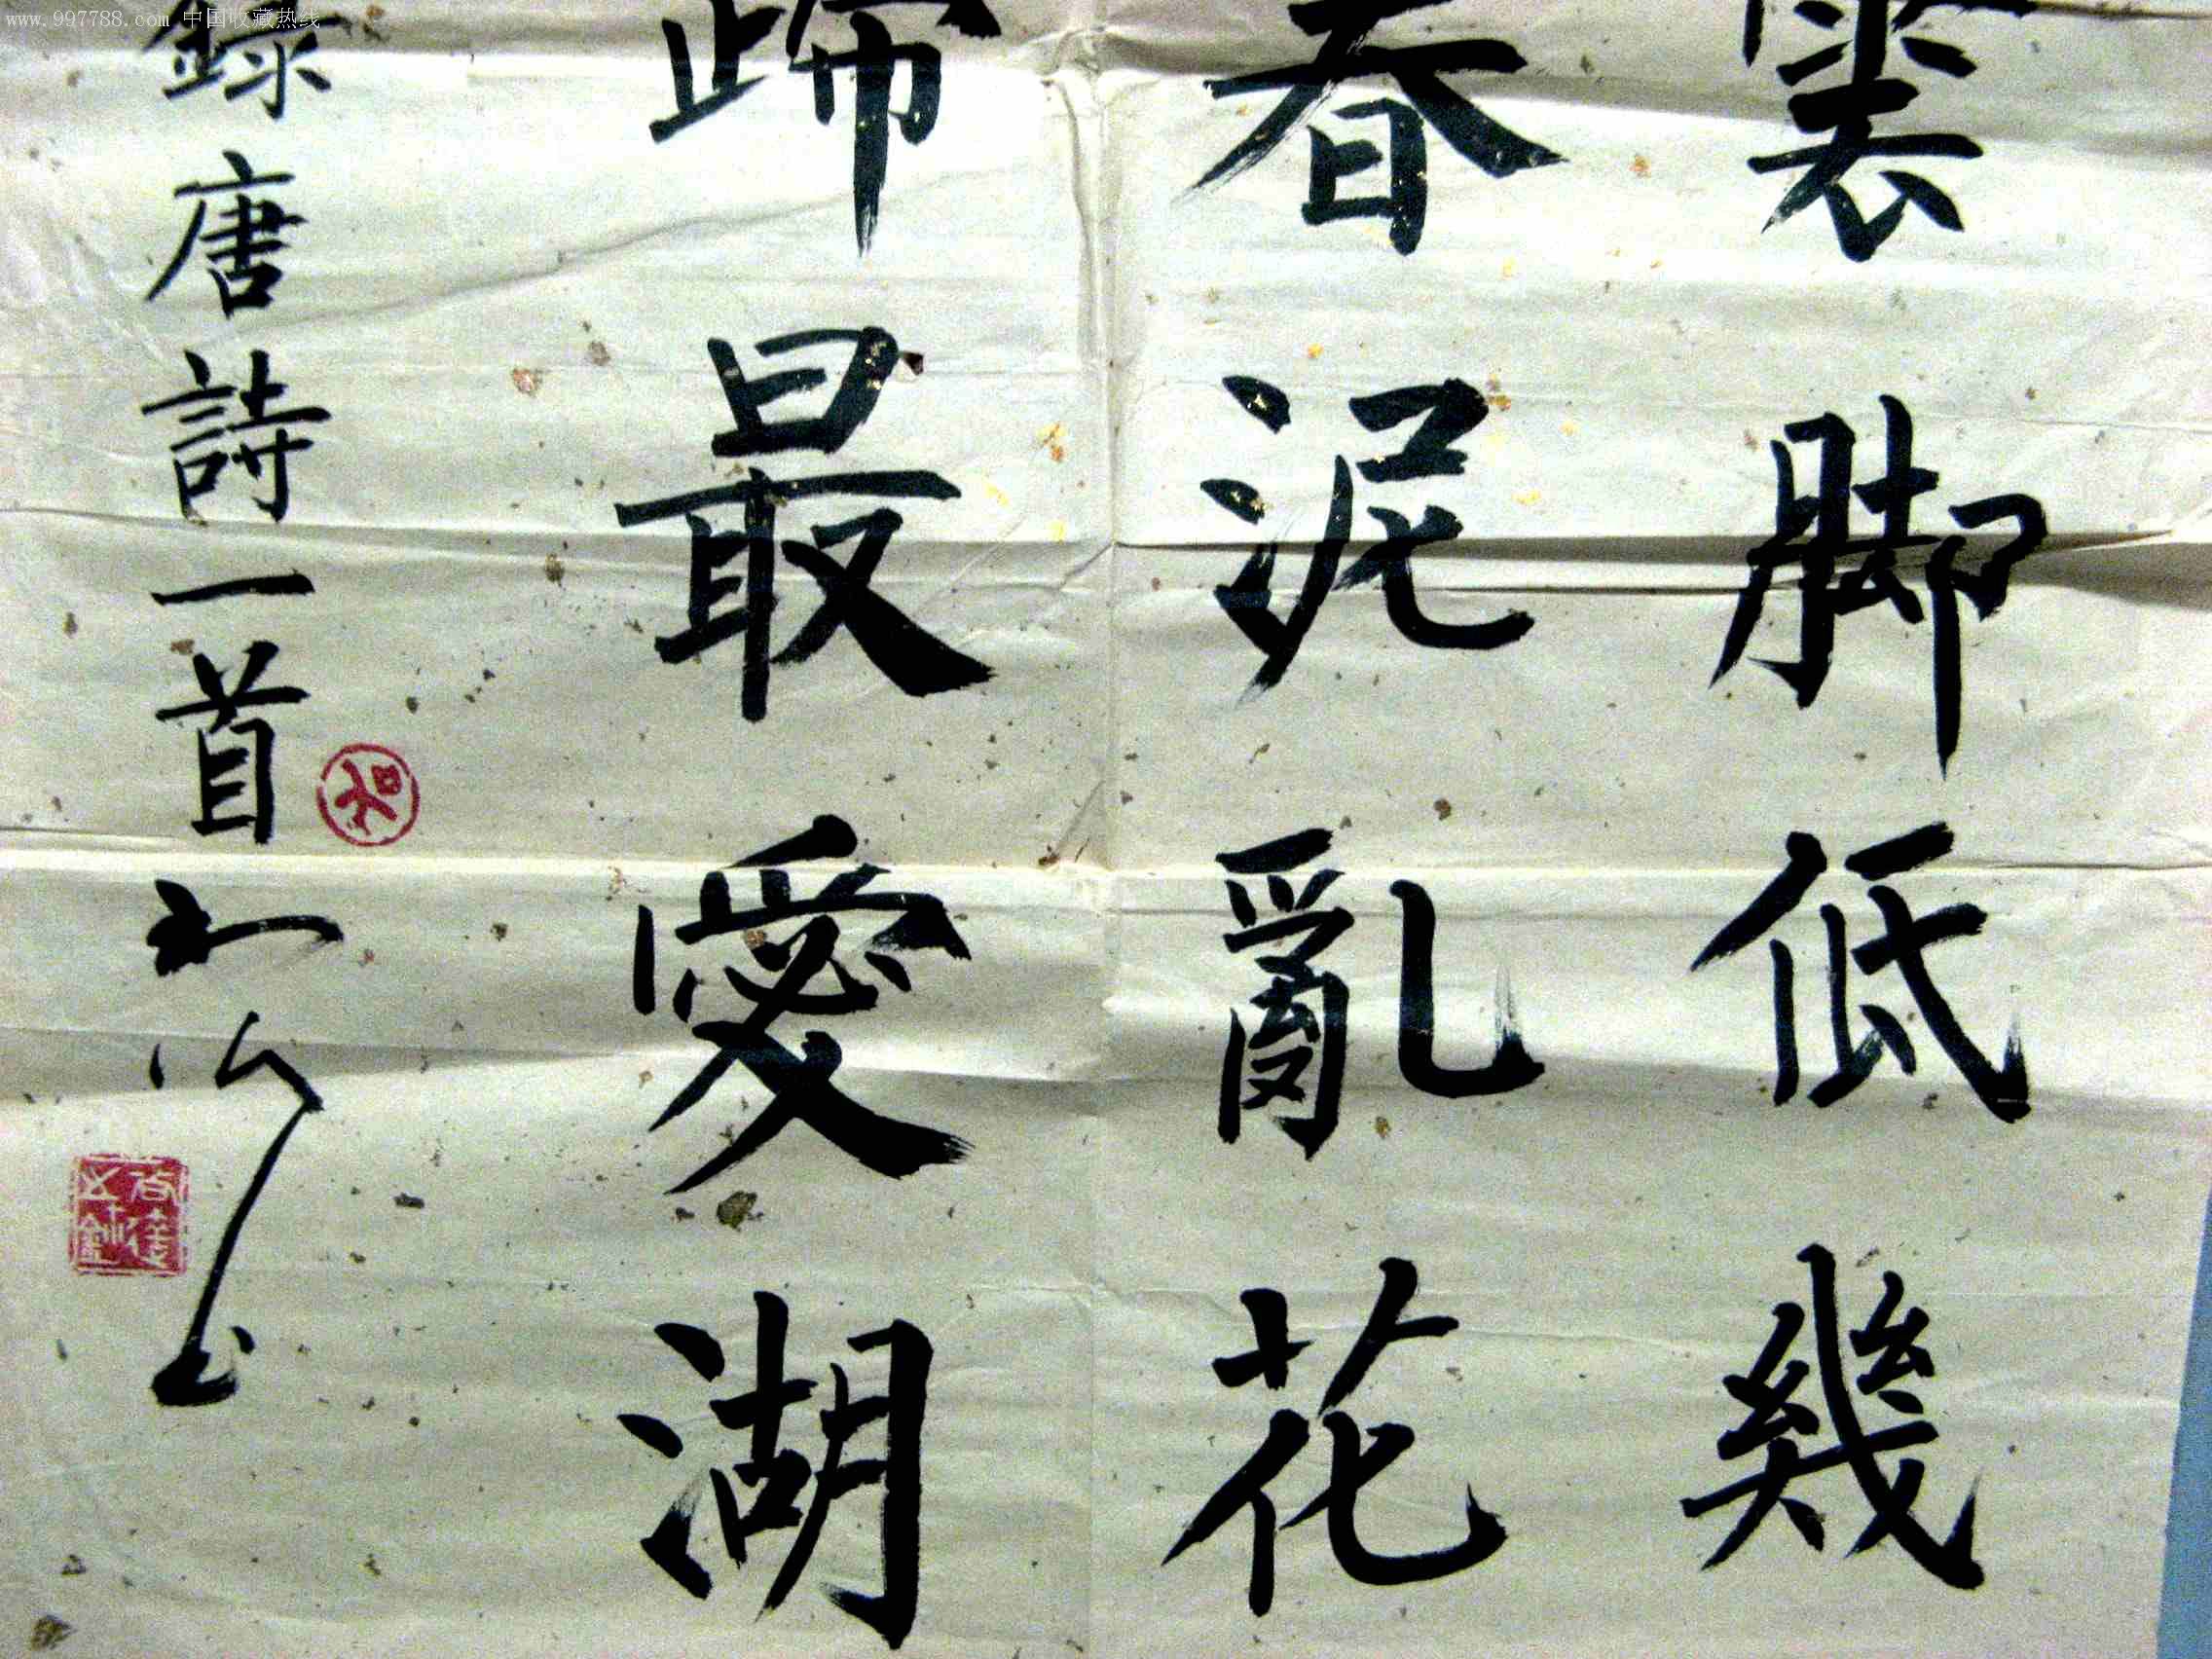 www.997788.com 中国收藏热线
雲脚低幾
春泥亂花
蹄最愛湖
錄唐詩一首